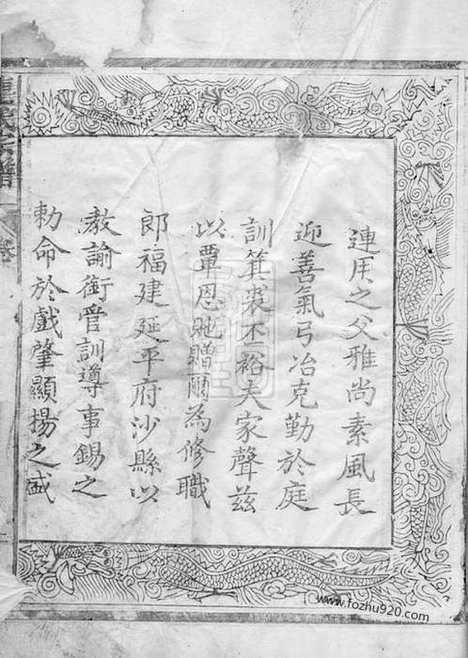 連庚之父雅尚素風長
迎善氣弓冶克勤於庭
訓箕裘丕裕夫家聲茲
以覃恩貤贈爾為修職
郎福建延平府沙縣以
教諭銜管訓導事錫之
勅命於戲肇顯揚之盛
www.fozhu920.com